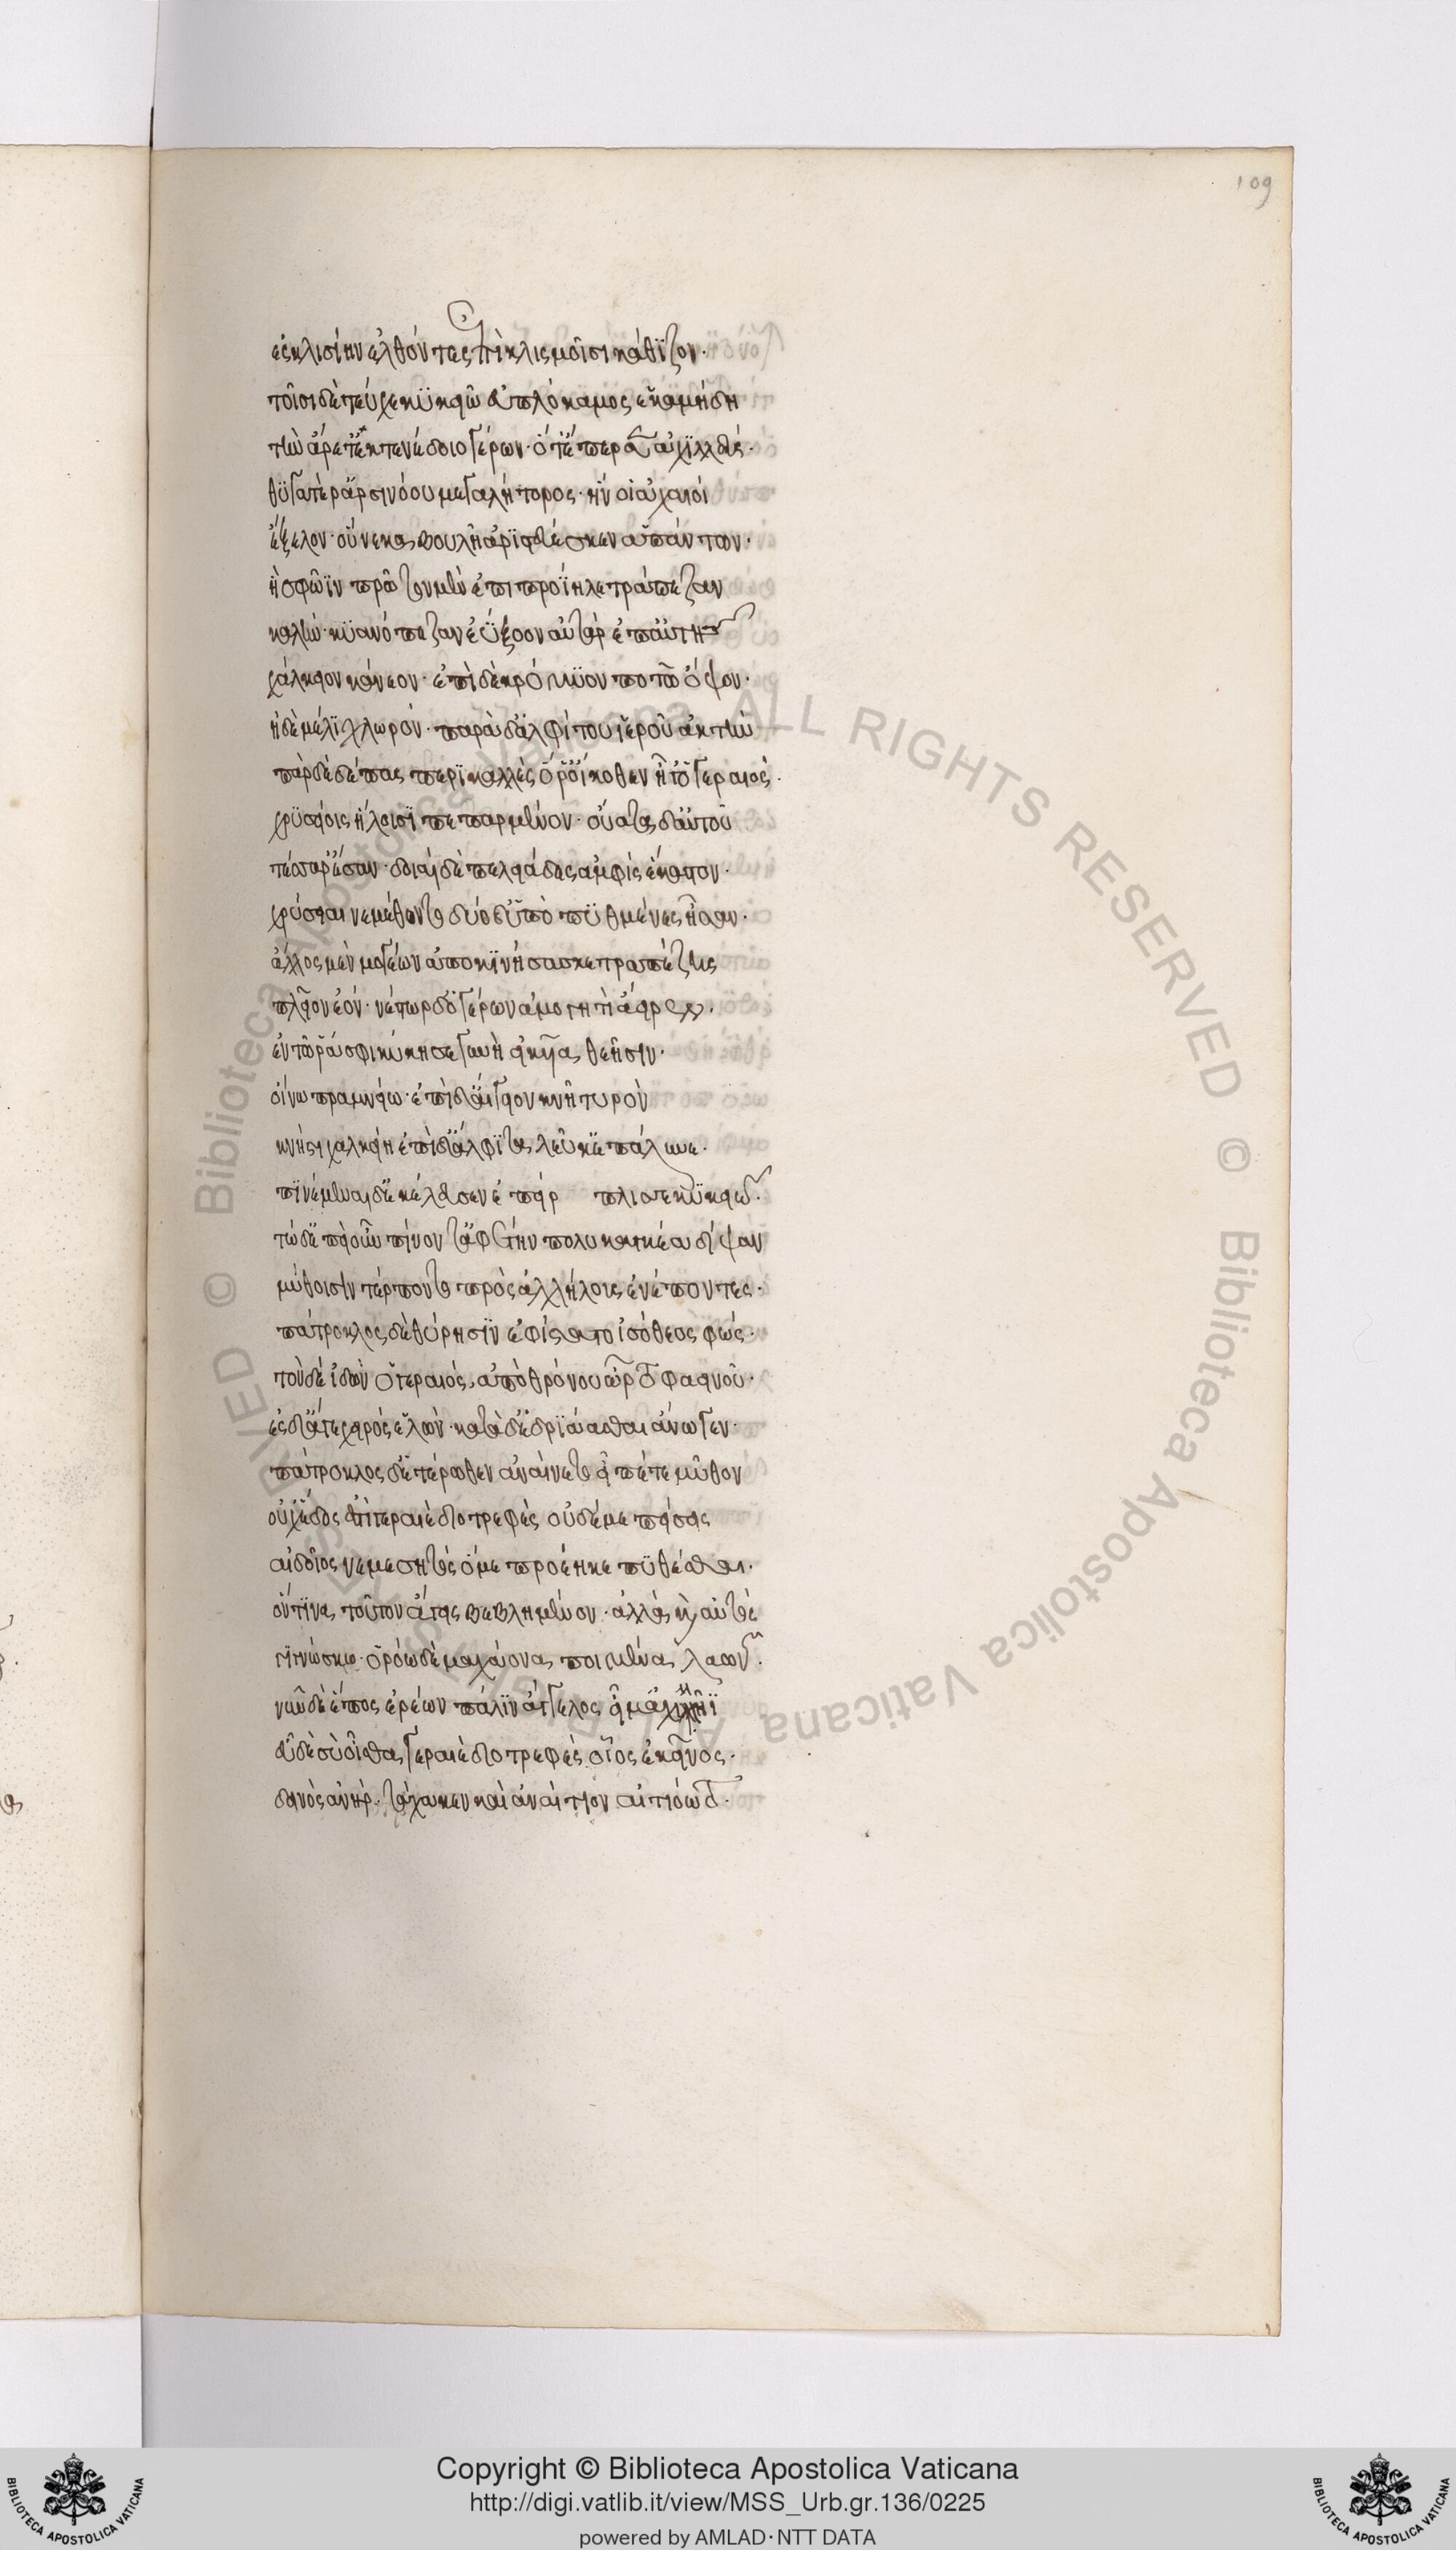 109
ἐς κλισίην ἐλθόντες ἐπὶ κλισμοῖσι κάθϊζον·
τοῖσι δὲ τεῦχε κϋκειῶ ἐϋπλόκαμος ἑκαμήδη
τὴν ἄρετ' ἐκ τενέδοιο γέρων· ὅτε πέρσεν ἀχϊλλεύς·
θϋγατέρ' ἀρσινόου μεγαλήτορος· ἥν οἱ ἀχαιοὶ
ἔξελον· οὕνεκα βουλῆ ἀρϊστεύεσκεν ἁπάντων·
ἥ σφῶϊν πρῶτον μὲν ἐπιπροΐηλε τράπεζαν
καλὴν· κϋανόπεζαν ἐΰξοον αὐτὰρ ἐπ' αὐτῆς
χάλκειον κάνεον· ἐπὶ δὲ κρόμϋον ποτῶ ὄψον·
ἠδὲ μέλϊ χλωρόν· παρὰ δ' ἀλφίτου ἱεροῦ ἀκτὴν
πὰρ δὲ δέπας περϊκαλλὲς ὃ οἴκοθεν ἦγ' ὁ γεραιός·
χρϋσείοις ἥλοισϊ πεπαρμένον· οὔατα δ' αὐτοῦ
τέσσαρ' ἔσαν· δοιαὶ δὲ πελειάδες ἀμφὶς ἕκαστον·
χρύσειαι νεμέθοντο δύο δ' ὑπὸ πϋθμένες ἦσαν·
ἄλλος μὲν μογέων ἀποκϊνήσασκε τραπέζης
πλεῖον ἐόν· νέστωρ δ' ὁ γέρων ἀμογητὶ ἄειρεν·
ἐν τῶ ῥά σφι κύκησε γυνὴ εἰκυῖα θεῆσιν·
οἴνω πραμνείω· ἐπὶ δ' αἴγειον κνῆ τυρὸν
κνήστι χαλκείη ἐπὶ δ' ἄλφϊτα λευκὰ πάλυνε·
πϊνέμεναι δ' ἐκέλευσεν ἐπεί ῥ ὥπλισε κϋκειῶ·
τὼ δ' ἐπεὶ οὖν πίνοντ' ἀφέτην πολυκαγκέα δίψαν
μύθοισιν τέρποντο πρὸς ἀλλήλους ἐνέποντες·
πάτροκλος δὲ θύρησϊν ἐφίστατο ἰσόθεος φώς·
τὸν δὲ ἰδὼν ὁ γεραιός, ἀπὸ θρόνου ὦρτο φαεινοῦ·
ἐς δ' ἄγε χειρὸς ἑλὼν· κατὰ δ' ἑδρϊάασθαι ἄνωγεν·
πάτροκλος δ' ἑτέρωθεν ἀναίνετο εἶπέ τε μῦθον
οὐχ ἕδος ἐστὶ γεραιὲ διοτρεφὲς οὐδέ με πείσεις
αἰδοῖος νεμεσητὸς ὅ με προέηκε πϋθέσθαι·
ὅντϊνα τοῦτον ἄγεις βεβλημένον· ἀλλὰ καὶ αὐτὸς
γϊγνώσκω· ὁρόω δὲ μαχάονα ποιμένα λαῶν·
νῦν δὲ ἔπος ἐρέων πάλϊν ἄγγελος εἶμ' ἀχϊλῆϊ
εὖ δὲ σὺ οἶσθα γεραιὲ διοτρεφὲς οἷος ἐκεῖνος·
δεινὸς ἀνήρ· τάχα κεν καὶ ἀναίτιον αἰτιόωτο·
Copyright © Biblioteca Apostolica Vaticana
http://digi.vatlib.it/view/MSS_Urb.gr.136/0225
powered by AMLAD·NTT DATA